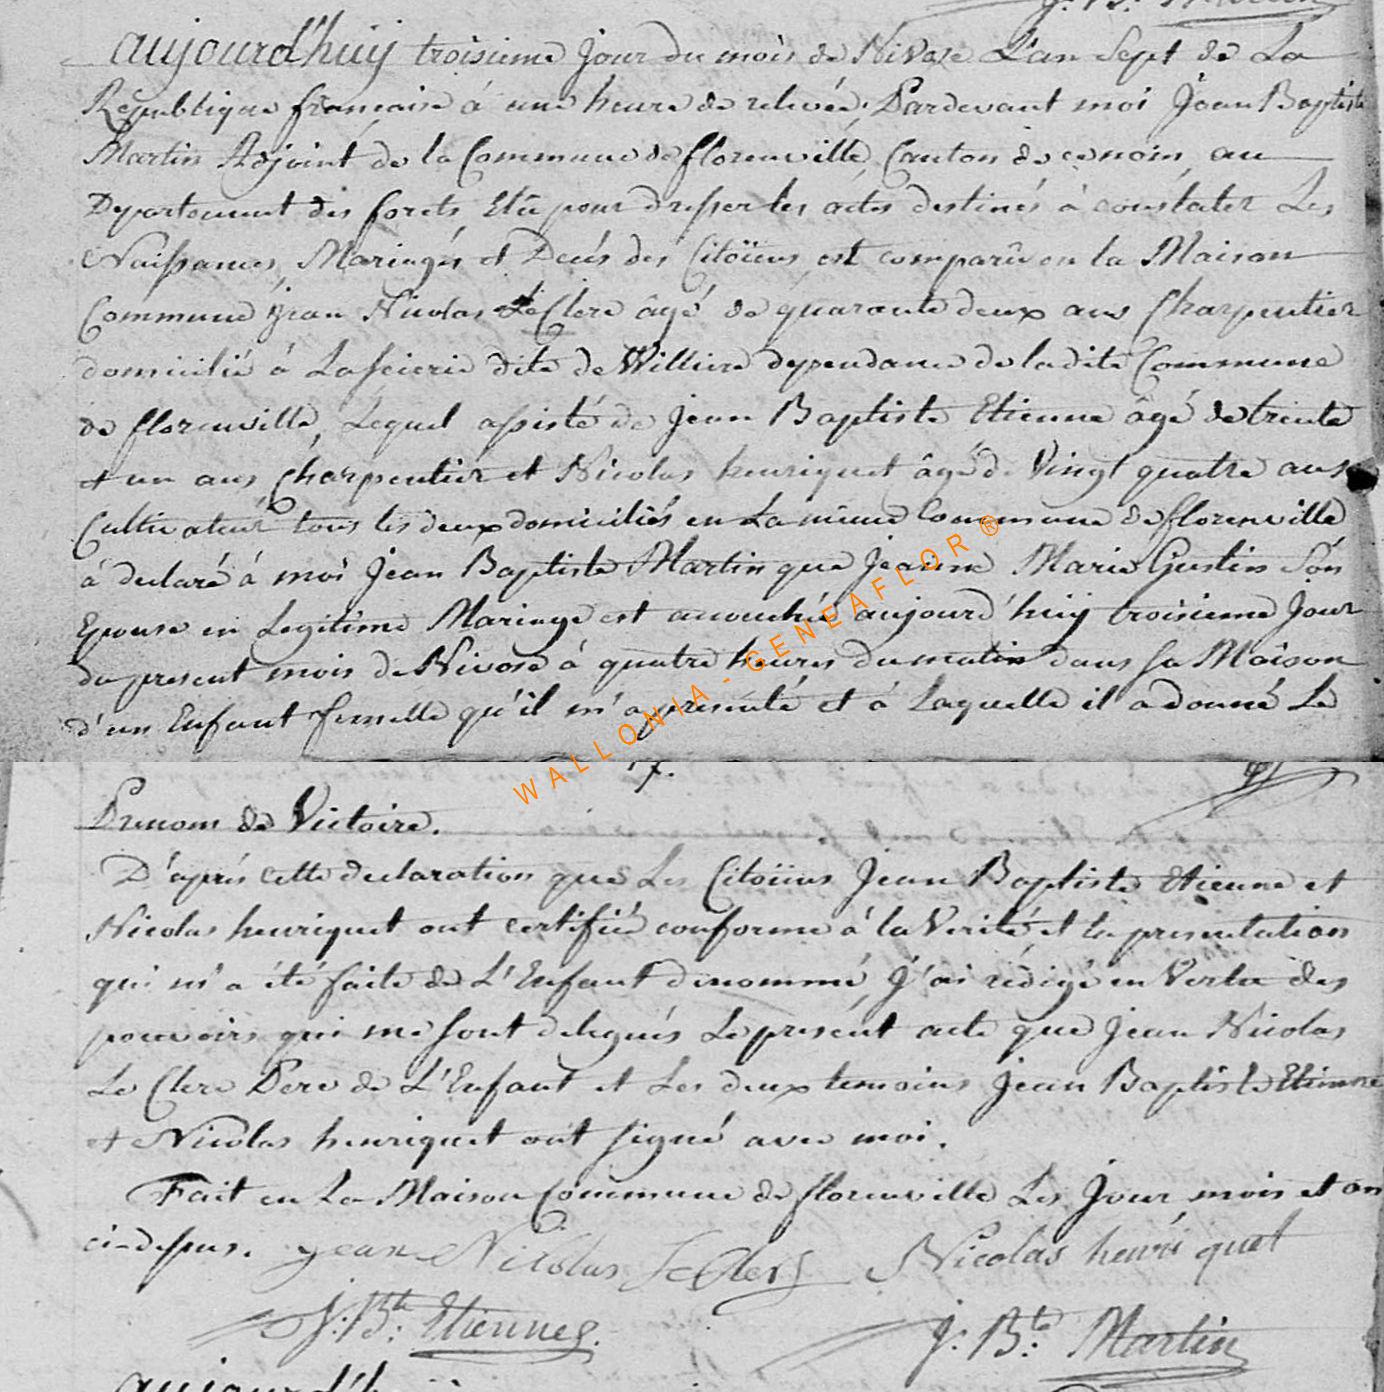 aujourd'huy troisieme Jour du mois de Nivose L'an Sept de La
République francaise à une heure de relevée, Pardevant moi Jean Baptiste
Martin Adjoint de la Commune de florenville, Canton de ce nom, au
Departement des forets Elû pour dresser les actes destinés à constater Les
Naissances, Mariages et Decés des Citoïens, est comparû en la Maison
Commune Jean Nicolas LeClerc âgé de quarante deux ans Charpentier
domicilié à La scierie dite de Williere dependance de la dite Commune
de florenville, Lequel assisté de Jean Baptiste Etienne âgé de trente
et un ans Charpentier et Nicolas henriquet âgé de Vingt quatre ans
Cultivateur tous les deux domiciliés en La même Commune de florenville
à declaré à moi Jean Baptiste Martin que Jeanne Marie Gustin Son
Epouse en Legitime Mariage est accouchée aujourd'huy troisieme Jour
du present mois de Nivose à quatre heures du matin dans sa Maison
d'un Enfant femelle qu'il m'a presenté et à Laquelle il a donné Le
Prenom de Victoire.
D'aprés cette declaration que Les Citoïens Jean Baptiste Etienne et
Nicolas henriquet ont certifié conforme à la Verité et la presentation
qui m'a été faite de L'Enfant denommé, J'ai rédigé en Vertu des
pouvoirs qui me sont delegués Le present acte que Jean Nicolas
Le Clerc Pere de L'Enfant et Les deux temoins Jean Baptiste Etienne
et Nicolas henriquet ont signé avec moi.
Fait en La Maison Commune de florenville Les Jour, mois et an
ci-dessus. jean Nicolas LeClerc Nicolas henri quet
J: Bte: Etienne J: Bte: Martin
WALLONIA - GENEAFLOR ®